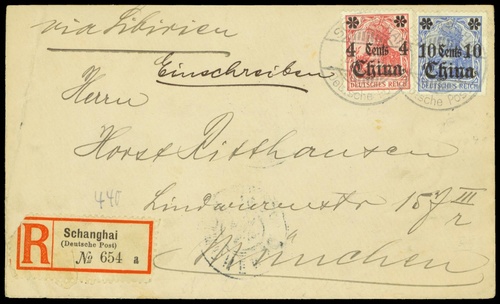 via Sibirien
4 Cents 4
China
DEUTSCHES REICH
10 Cents 10
China
DEUTSCHES REICH
Deutsche Post
Einschreiben
Herrn
Horst Ritthausen
440
Lindwurmstr 157 III r
München
R
Schanghai
(Deutsche Post)
№ 654 a